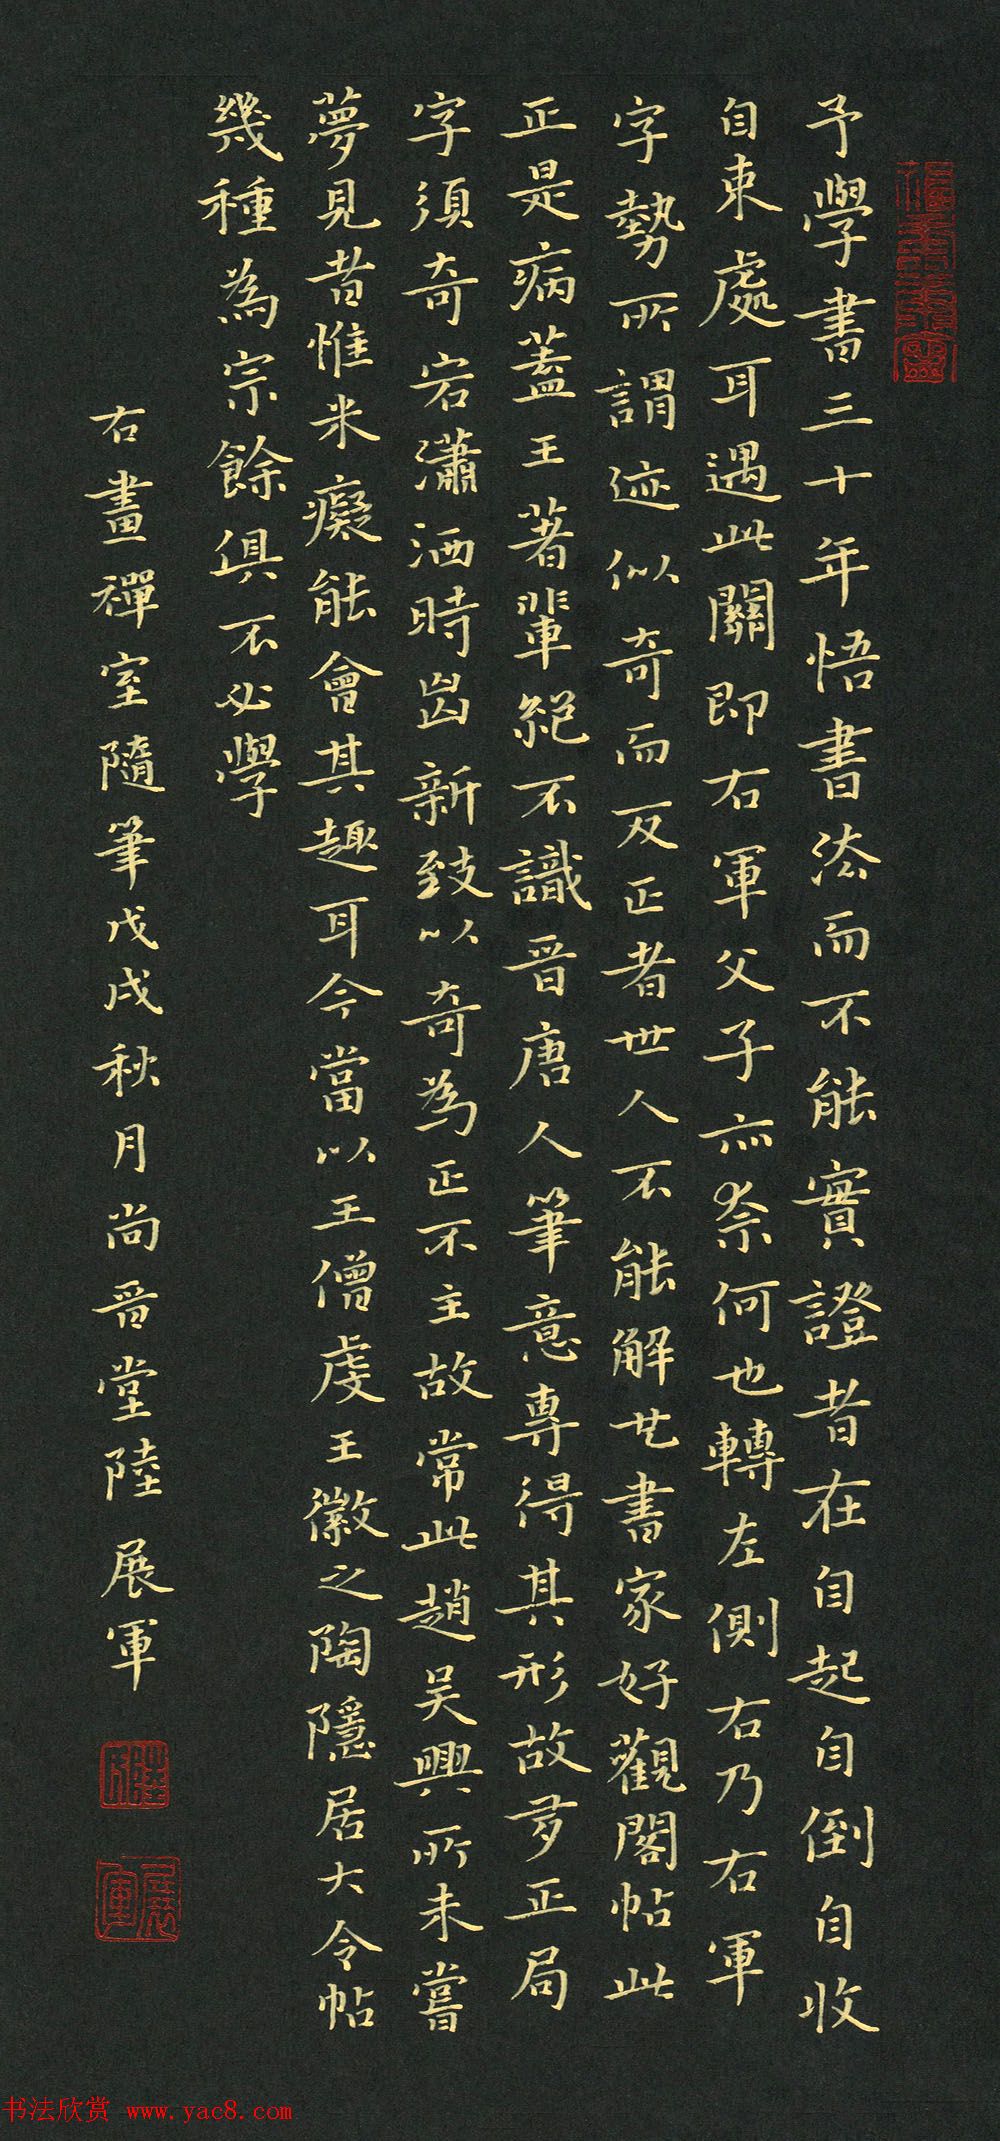 予學書三十年悟書法而不能實證者在自起自倒自收
自束處耳遇此關即右軍父子亦奈何也轉左側右乃右軍
字勢所謂迹似奇而反正者世人不能解也書家好觀閣帖此
正是病蓋王著輩絕不識晉唐人筆意專得其形故多正局
字須奇宕瀟洒時出新致以奇為正不主故常此趙吳興所未嘗
夢見者惟米癡能會其趣耳今當以王僧虔王徽之陶隱居大令帖
幾種為宗餘俱不必學
右畫禪室隨筆戊戌秋月尚晉堂陸展軍
陸
展軍
书法欣赏 www.yac8.com